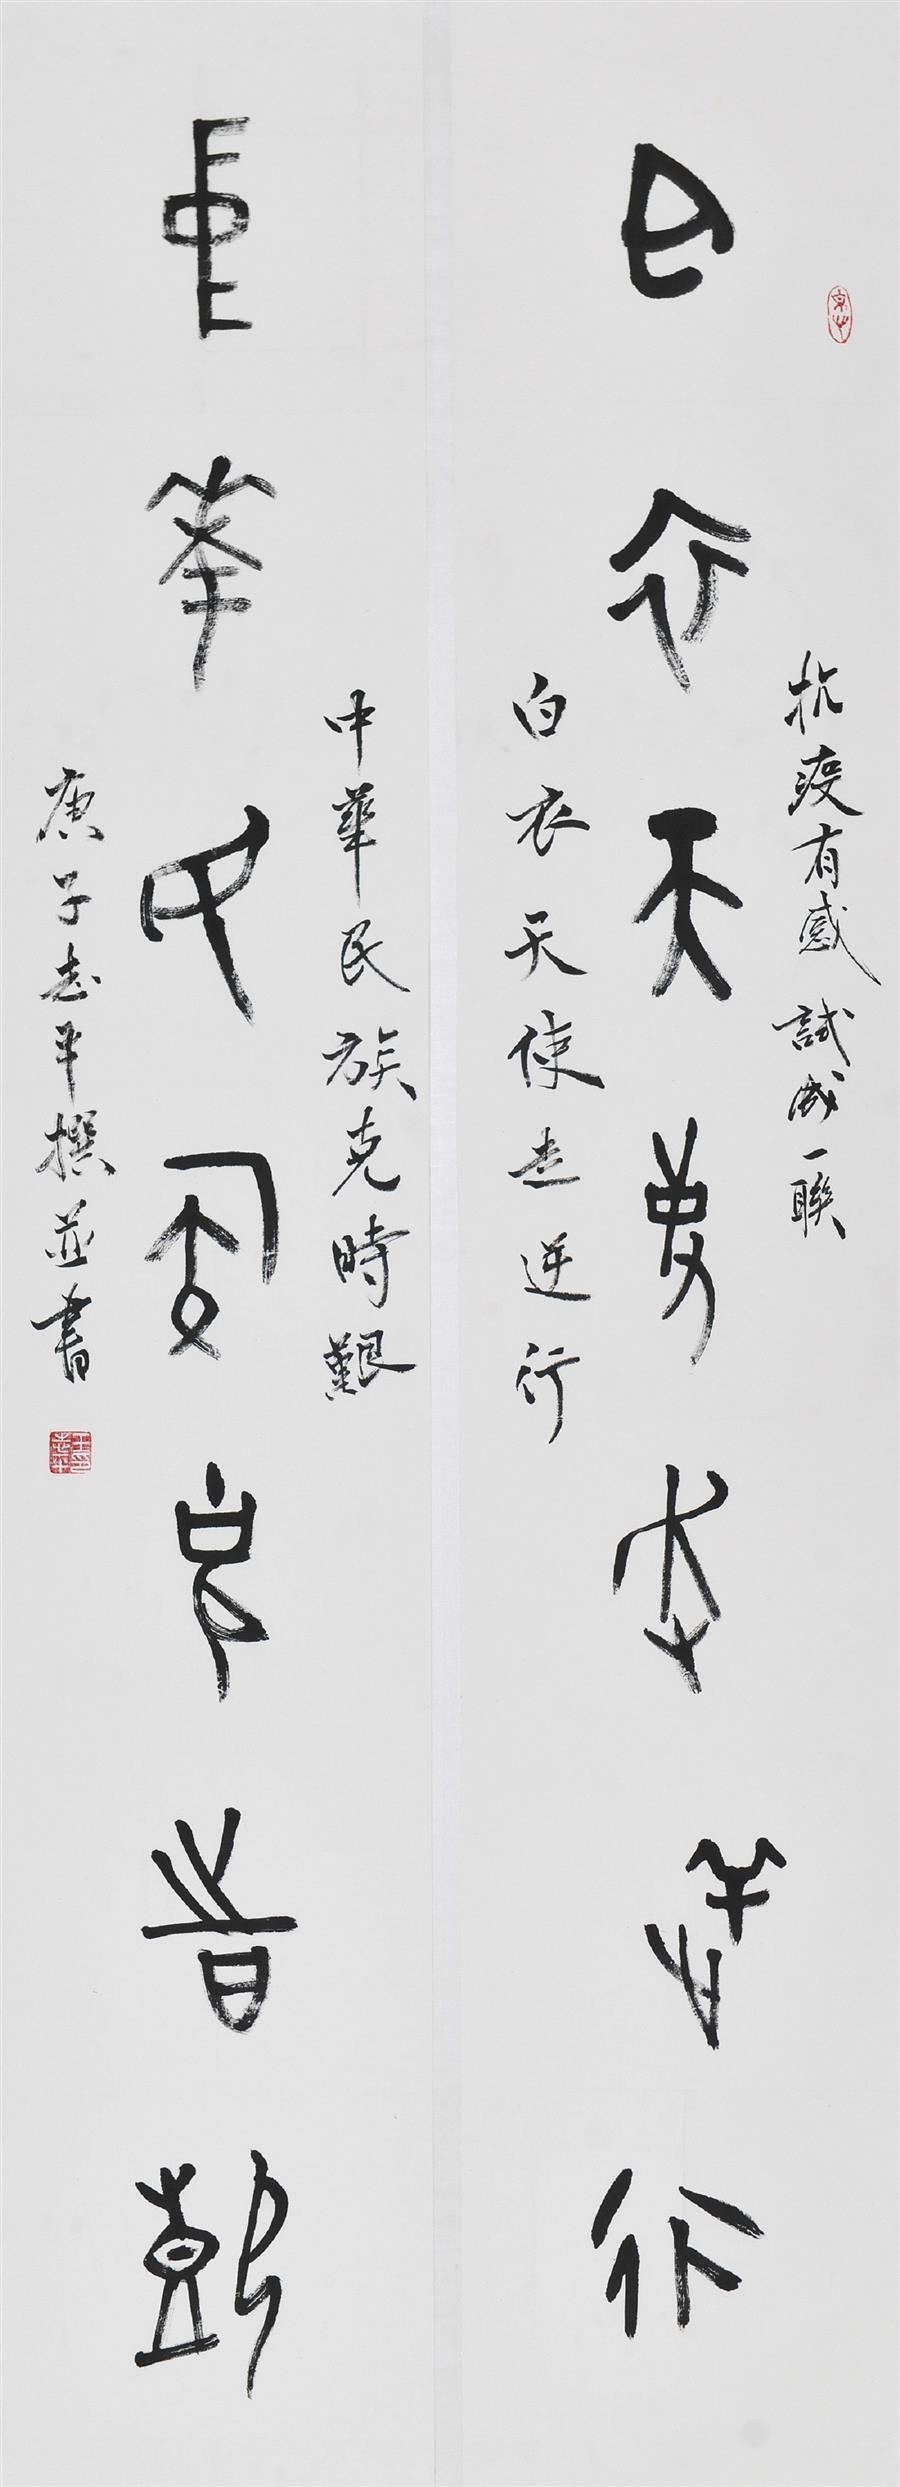 抗疫有感試成一聯
白衣天使走逆行
白衣天使走逆行
中華民族克時艱
中華民族克時艱
庚子志平撰並書